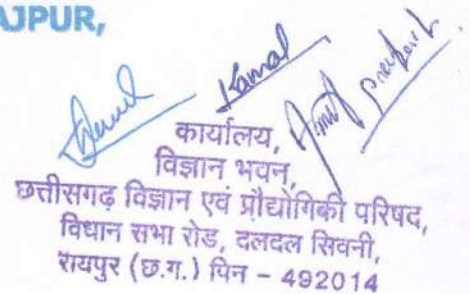 AJPUR,
Kamal
कार्यालय,
विज्ञान भवन,
छत्तीसगढ़ विज्ञान एवं प्रौद्योगिकी परिषद,
विधान सभा रोड, दलदल सिवनी,
रायपुर (छ.ग.) पिन - 492014